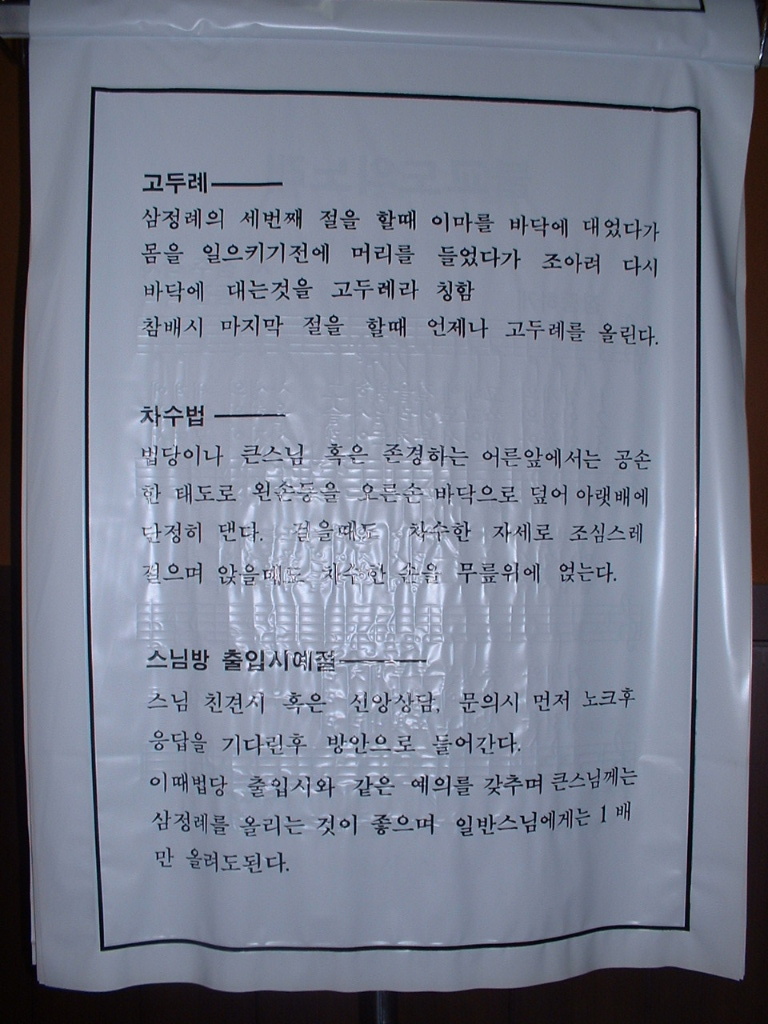 고두례
삼정례의 세번째 절을 할때 이마를 바닥에 대었다가
몸을 일으키기전에 머리를 들었다가 조아려 다시
바닥에 대는것을 고두레라 칭함
참배시 마지막 절을 할때 언제나 고두례를 올린다.
차수법
법당이나 큰스님 혹은 존경하는 어른앞에서는 공손
한 태도로 왼손등을 오른손 바닥으로 덮어 아랫배에
단정히 댄다. 걸을때도 차수한 자세로 조심스레
걸으며 앉을때도 차수한 손을 무릎위에 얹는다.
스님방 출입시예절
스님 친견시 혹은 신앙상담, 문의시 먼저 노크후
응답을 기다린후 방안으로 들어간다.
이때법당 출입시와 같은 예의를 갖추며 큰스님께는
삼정례를 올리는 것이 좋으며 일반스님에게는 1 배
만 올려도된다.